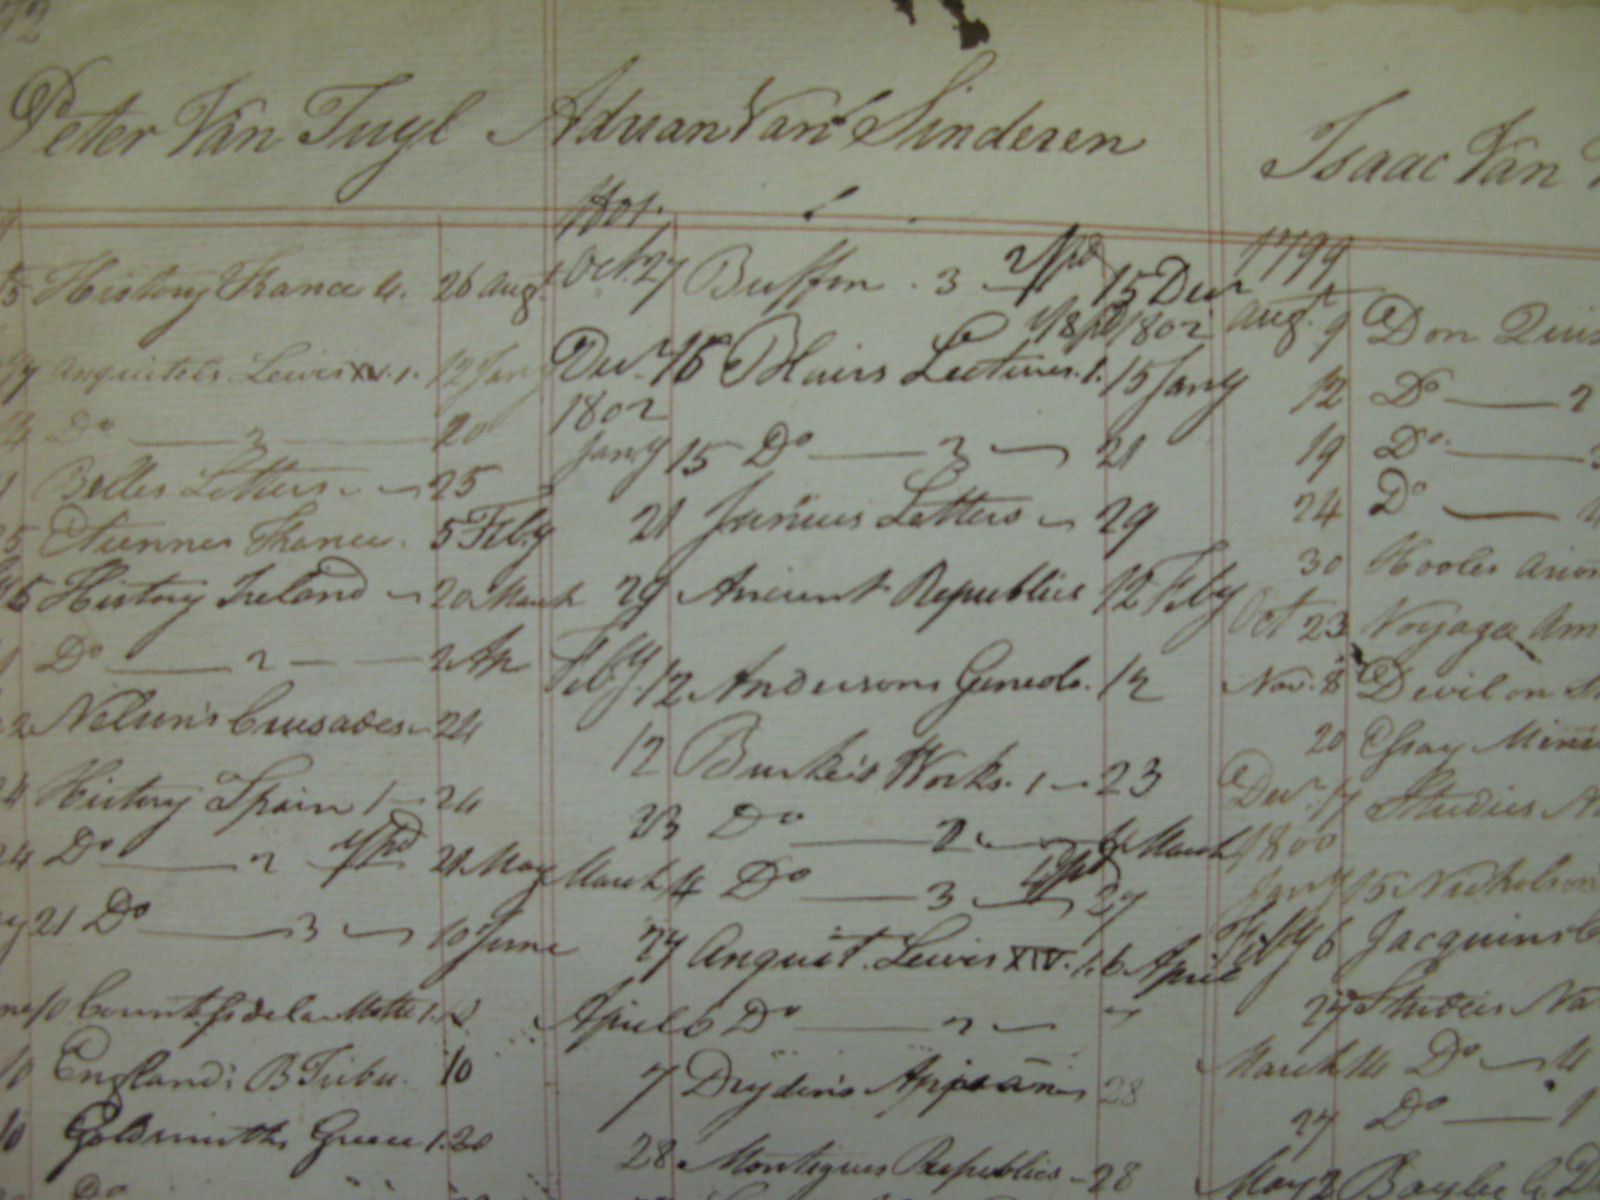 Peter Van Tuyl
5 History France 4. 26 augt
Anquitels Lewis XV. 1. 12 Jany
Do 3 20
Belles Letters 25
25 Etiennes France. 5 Feby
History Ireland 20 March
Do 2 2 Ap
Nelson's Crusades 24
24 History Spain 1 24
24 Do 2 4/pd 21 May
21 Do 3 10 June
10 Countess de la Motte 1.
10 England: B Tribu. 10
10 Goldsmiths Greece 1. 20
Do
Adrian Van Sinderen
1801.
Oct. 27 Buffon. 3 2/pd 15 Decr
Decr. 15 Blairs Lectures. 1. 1/8 pd 1802 15 Jany
1802
Jany 15 Do 2 21
21 Junius Letters 29
29 Ancient Republics 12 Feby
Feby. 12 Andersons Geneolo. 12
12 Burke's Works. 1 23
23 Do 2 4 March
March 4 Do 3 4/pd 27
27 Anquit. Lewis XIV. 1. 6 April
April 6 Do 2 7
7 Dryden's 28
28 Montegues Republics 28
Isaac Van
1799
augt. 9 Don Quix
12 Do 2
19 Do 3
24 Do 4
30 Hooles Arios
Oct 23 Voyage Am
Nov. 8 Devil on
20 Essay
Decr. 17 Studies Na
1800
Jany 15 Nicholson
Feby 6 Jacquins
27 Studies Na
March 14 Do 4
27 Do 1
May 2